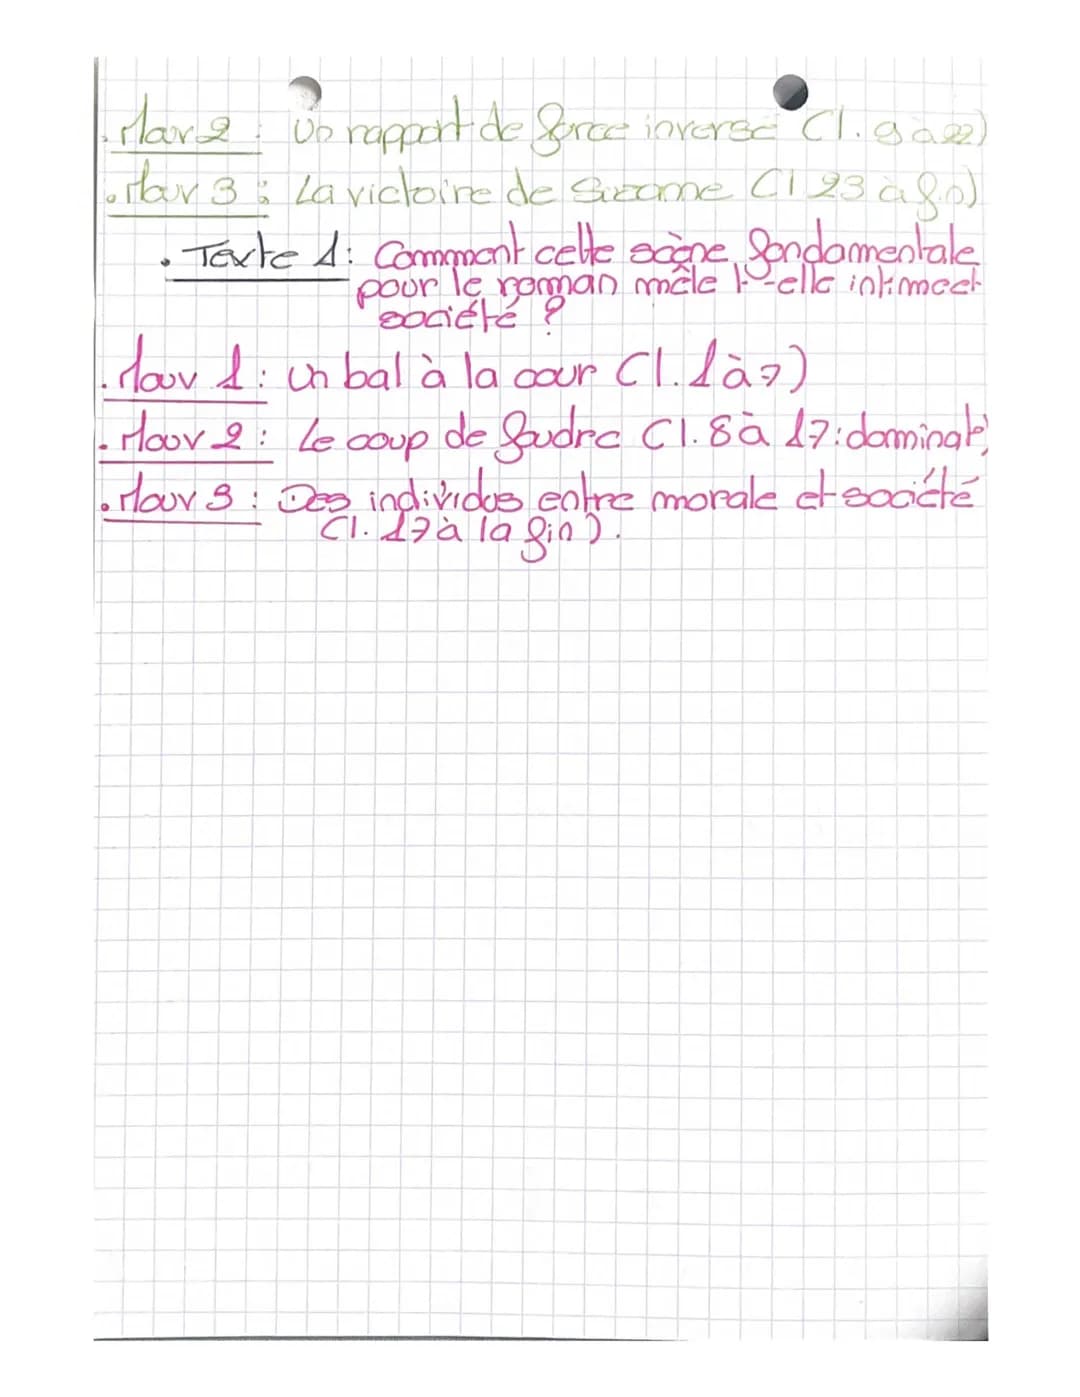 . Mouv 2 : Un rapport de force inversé (l. 9 à 22)
. Mouv 3 : La victoire de Suzanne (l 23 à fin)
. Texte 1 : Comment cette scène fondamentale
pour le roman mêle t-elle intime et
société ?
. Mouv 1 : Un bal à la cour (l. 1 à 7)
. Mouv 2 : Le coup de foudre (l. 8 à 17 : dominat°)
. Mouv 3 : Des individus entre morale et société
(l. 17 à la fin).